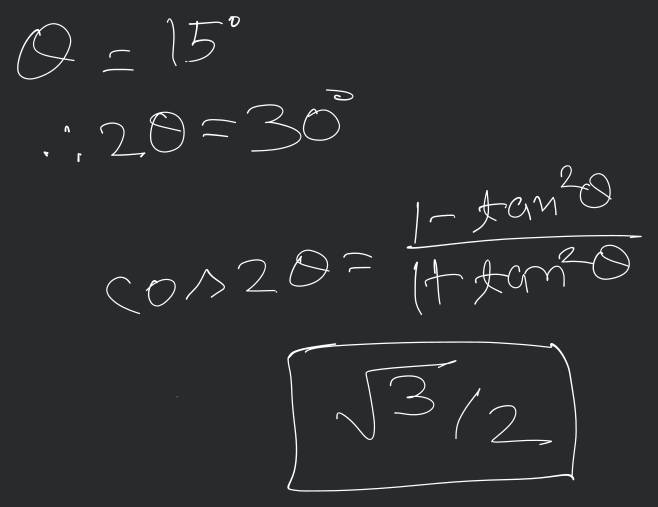 θ = 15°
∴ 2θ = 30°
cos2θ = (1 - tan²θ)/(1 + tan²θ)
√3/2